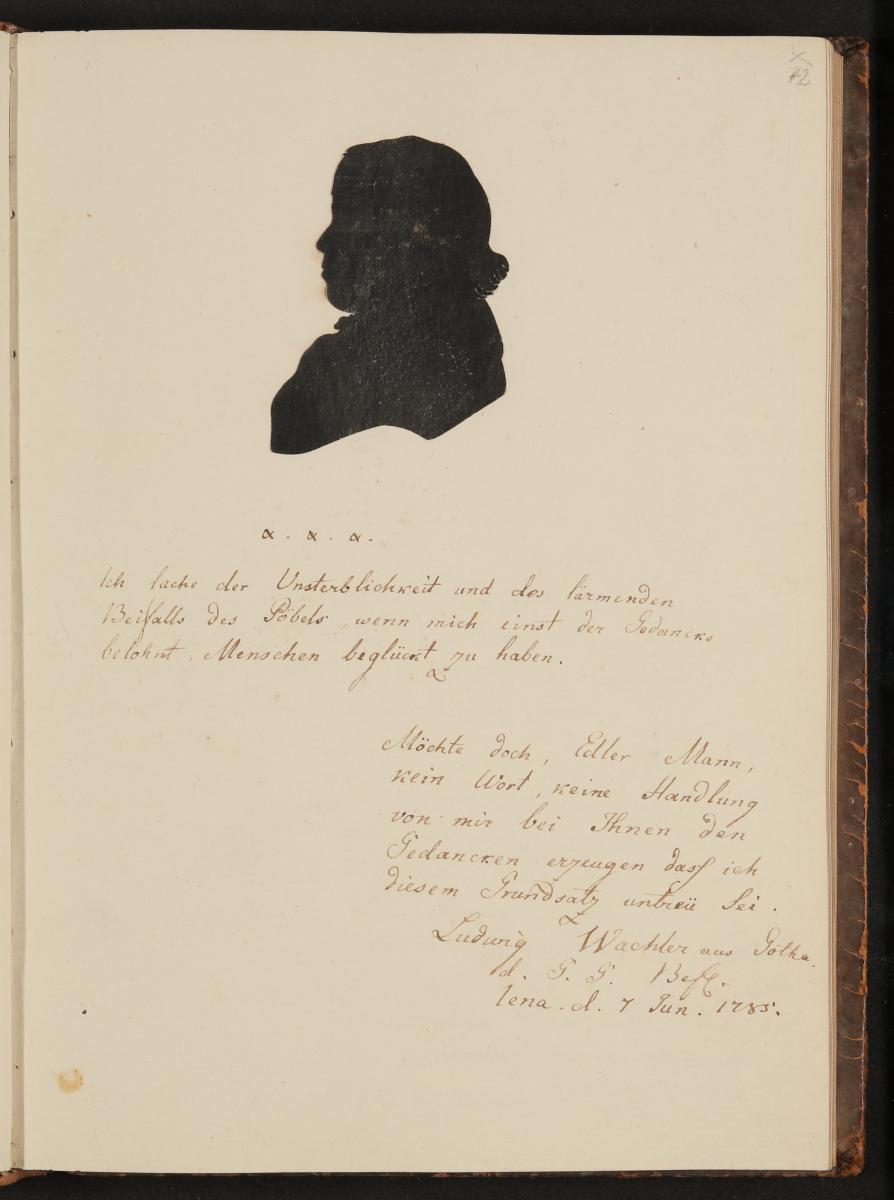 x
12
α . α . α .
Ich lache der Unsterblichkeit und des lärmenden
Beifalls des Pöbels, wenn mich einst der Gedancke
belohnt, Menschen beglückt zu haben.
Möchte doch, Edler Mann,
kein Wort, keine Handlung
von mir bei Ihnen den
Gedancken erzeugen dass ich
diesem Grundsatz untreü Sei.
Ludwig Wachler aus Gotha.
d. G. G. Befl.
Iena. d. 7 Jun. 1785.